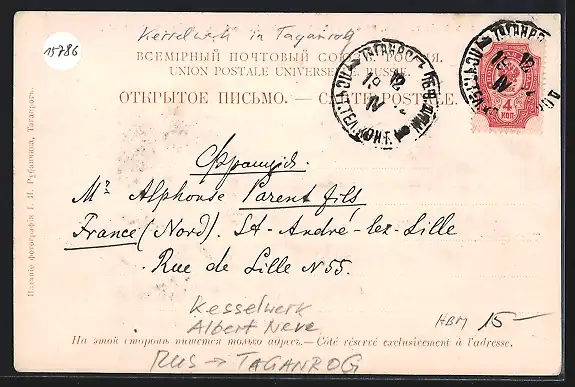 15786
Kesselwerk in Taganrog
ВСЕМІРНЫЙ ПОЧТОВЫЙ СОЮЗЪ. РОССІЯ.
UNION POSTALE UNIVERSELLE. RUSSIE.
ОТКРЫТОЕ ПИСЬМО. — CARTE POSTALE.
ТАГАНРОГЪ
ТАГАНРО
4
КОП.
Франція.
Mr Alphonse Parent fils
France (Nord). St-André-lez-Lille
Rue de Lille N 55.
Kesselwerk
Albert Neve
HBM 15-
На этой сторонѣ пишется только адресъ. — Côté réservé exclusivement à l'adresse.
RUS → TAGANROG
Изданіе фотографіи І. Я. Рубанчика, Таганрогъ.